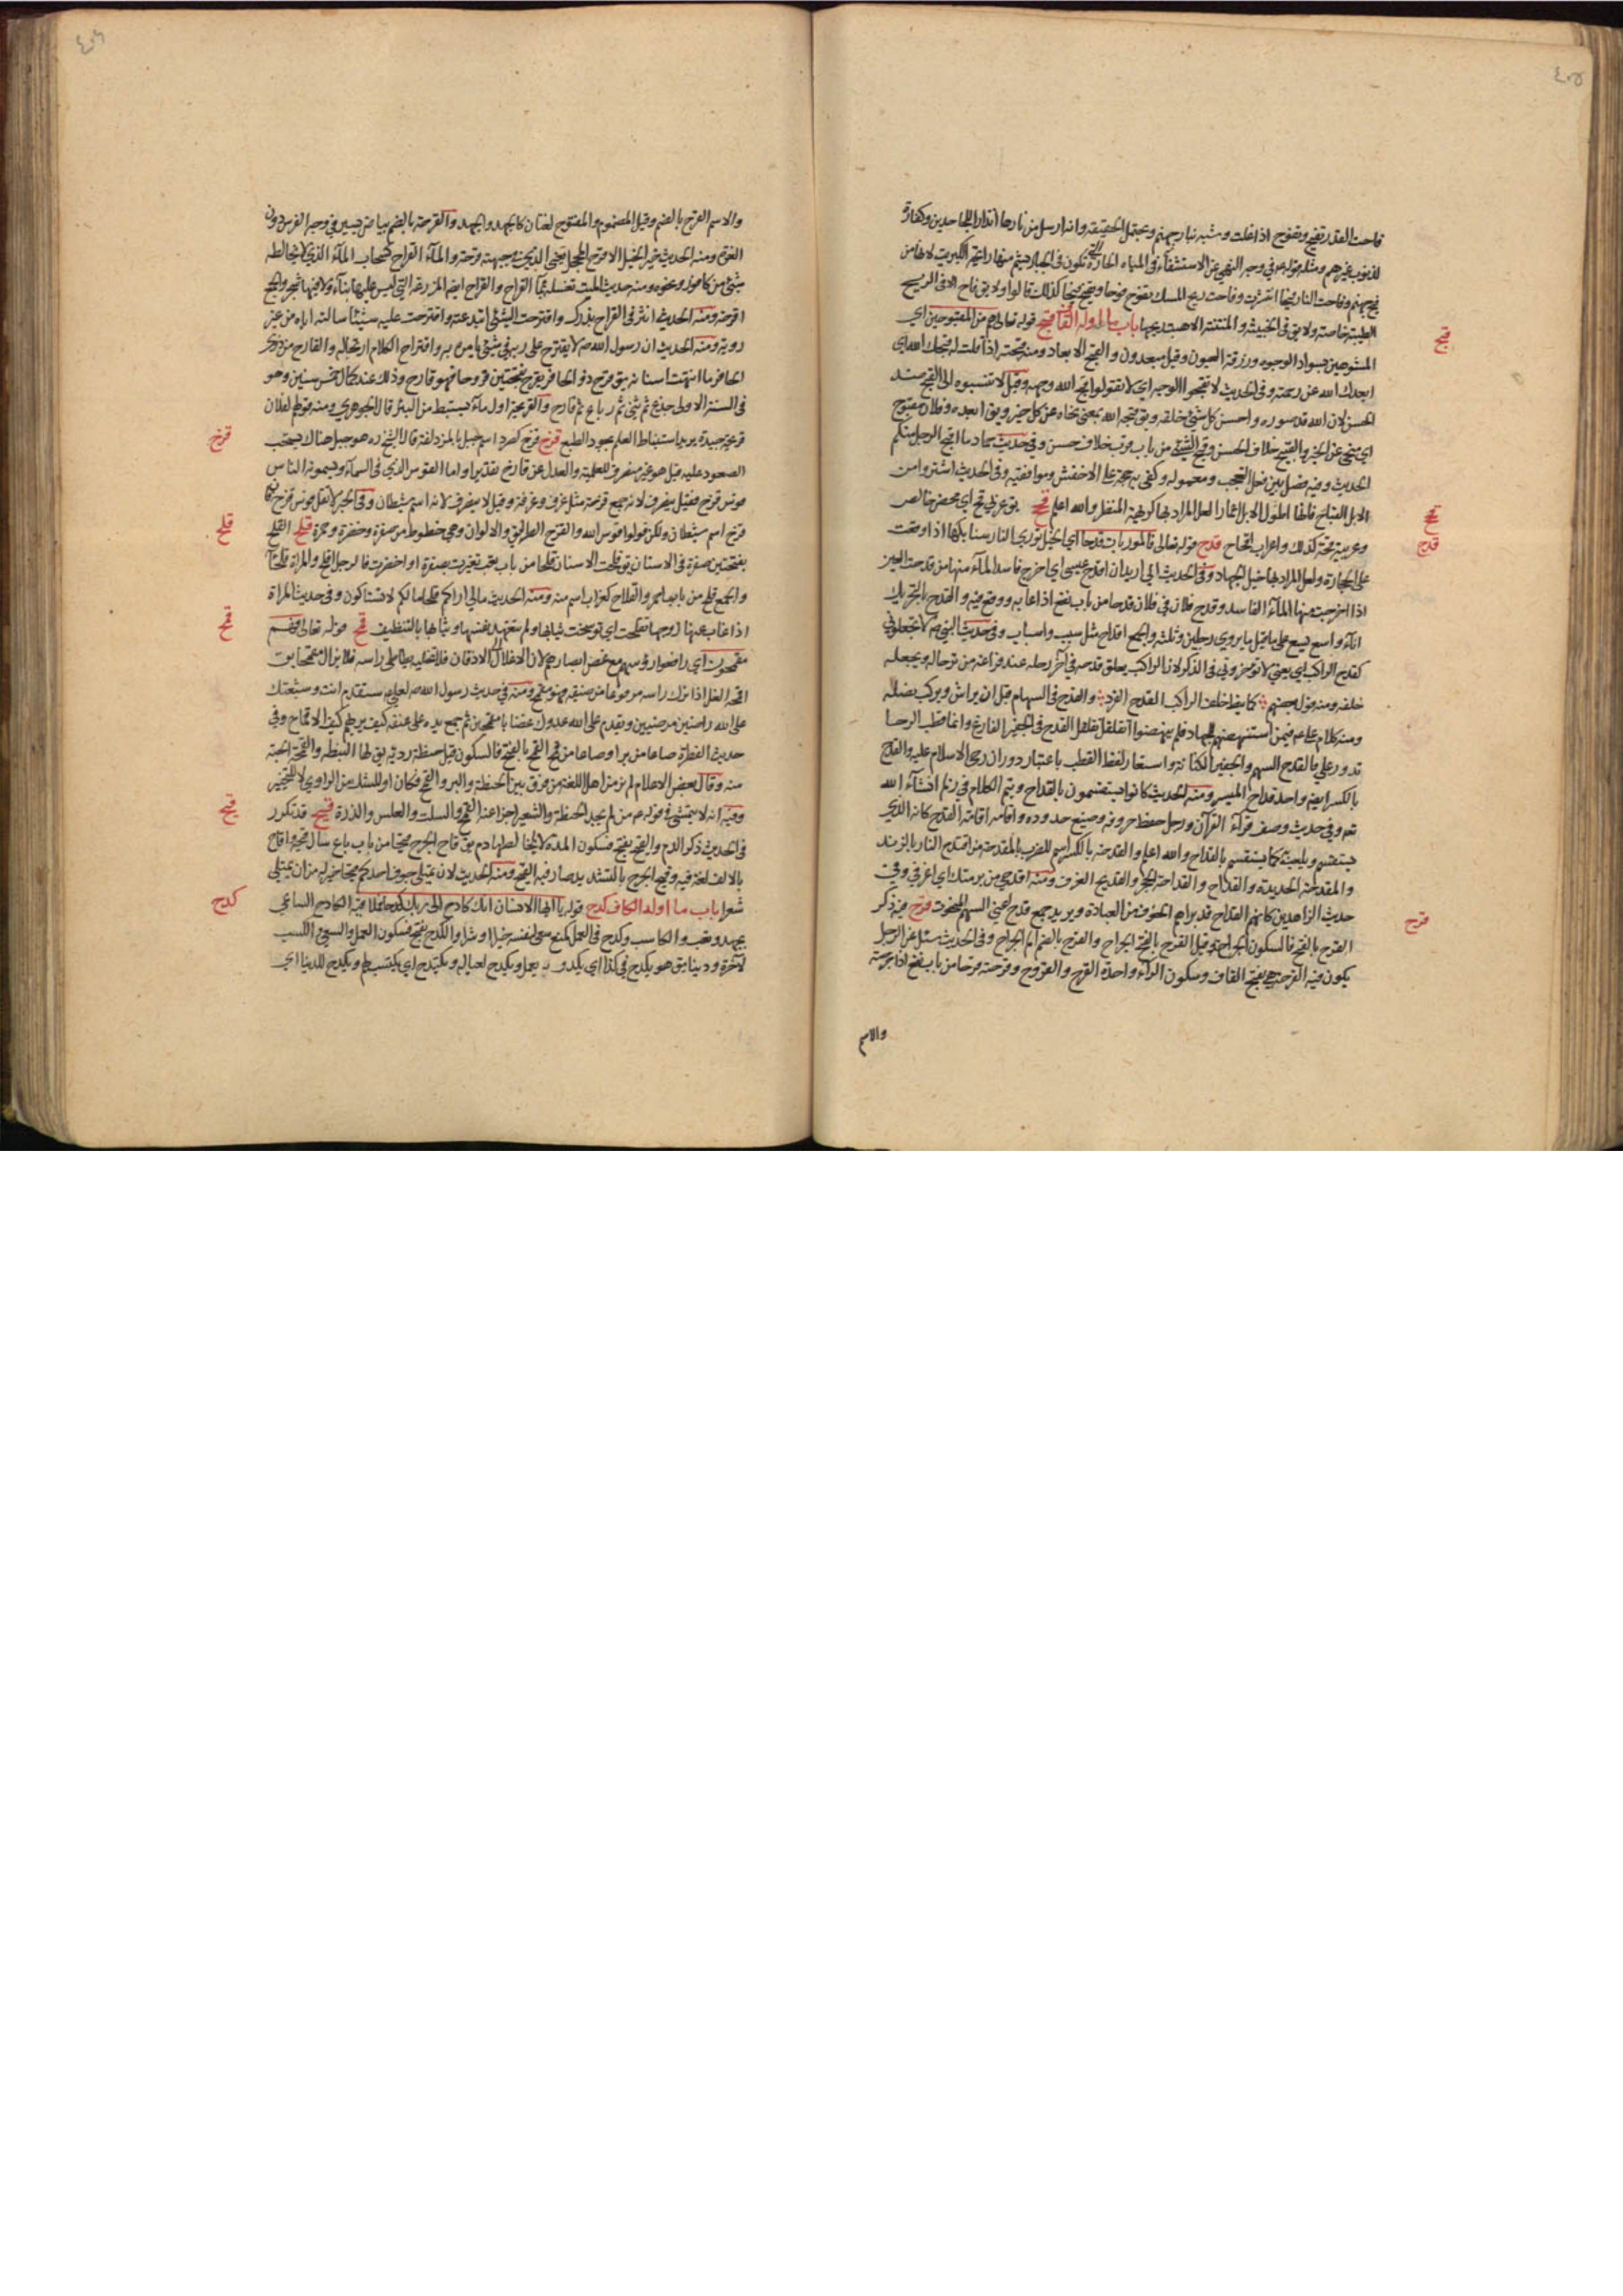 ٤٠٥
فاحت القدر تفيح وتفوح اذا غلت وشبه بنار جهنم ويحتمل الحقيقة وانه ارسل من نارها انذارا للجاحدين وكفارة
لذنوب غيرهم ومثله قوله في وجه النهي عن الاستشفاء في المياه الحارة التي تكون في الجبال يشم منها رائحة الكبريت لانها من
فيح جهنم وفاحت النار فيحا انتشرت وفاحت ريح المسك تفوح فوحا وتفيح فيحا كذلك قالوا ولا يق فاح الا في الريح
الطيبة خاصة ولا يق في الخبيثة والمنتنة الا هبت ريحها باب ما اوله القاف قبح قوله تعالى هم من المقبوحين اي
قبح
المشوهين بسواد الوجوه وزرقة العيون وقيل مبعدون والقبح الابعاد ومنه قبحته اذا قلت له قبحك الله اي
ابعدك الله عن رحمته وفي الحديث لا تقبحوا الوجه اي لا تقولوا قبح الله وجهه وقيل لا تنسبوه الى القبح ضد
الحسن لان الله قد صوره واحسن كل شئ خلقه ويق قبحه الله بمعنى نحاه عن كل خير ويق ابعده وفلان مقبوح
اي منحى عن الخير والقبيح خلاف الحسن وقبح الشئ من باب قرب خلاف حسن وفي حديث حماد ما اقبح الرجل منكم
الحديث وفيه فصل بين فعل التعجب ومعموله وكفى به حجة على الاخفش وموافقيه وفي الحديث اشتروا من
الابل القباح فانها اطول الابل اعمارا لعل المراد بها كريهة المنظر والله اعلم قح يق عربي قح اي محض خالص
قح
وعربية قحة كذلك واعراب اقحاح قدح قوله تعالى فالموريات قدحا اي الخيل توري النار سنابكها اذا وقعت
قدح
على الحجارة ولعل المراد بها خيل الجهاد وفي الحديث اني اريد ان اقدح عيني اي اخرج فاسد الماء منها من قدحت العين
اذا اخرجت منها الماء الفاسد وقدح فلان في فلان قدحا من باب نفع اذا عابه ووقع فيه والقدح بالتحريك
اناء واسع يسع على ما قيل ما يروي رجلين وثلثة والجمع اقداح مثل سبب واسباب وفي حديث النبي ص لا تجعلوني
كقدح الراكب اي يعني لا تؤخروني في الذكر لان الراكب يعلق قدحه في آخر رحله عند فراغه من ترحاله ويجعله
خلفه ومنه قول بعضهم كما نيط خلف الراكب القدح الفرد والقدح في السهام قبل ان يراش ويركب نصله
ومنه كلام علي ع فيمن استنهضهم للجهاد فلم ينهضوا اتقلقل تقلقل القدح في الجفير الفارغ وانما قطب الرحا
تدور علي فالقدح السهم والجفير الكنانة واستعار لفظ القطب باعتبار دوران رحى الاسلام عليه والقدح
بالكسر ايضا واحد قداح الميسر ومنه الحديث كانوا يستقسمون بالقداح ويتم الكلام في زلم انشاء الله
تعم وفي حديث وصف قراء القرآن ورجل حفظ حروفه وضيع حدوده واقامه اقامة القدح كانه الذي
يستقسم ويلعب كما يستقسم بالقداح والله اعلم والقدحة بالكسر اسم للضرب بالمقدحة من اقتدح النار بالزند
والمقدحة الحديدة والقداح والقداحة الحجر والقديح الغرف ومنه اقدحي من برمتك اي اغرفي وفي
حديث الزاهدين كانهم القداح قد براهم الخوف من العبادة ويريد جمع قدح اعني السهم المنحوت قرح فيه ذكر
قرح
القرح بالفتح فالسكون الجراحة وقيل القرح بالفتح الجراح والقرح بالضم الم الجراح وفي الحديث سئل عن الرجل
يكون فيه القرحة هي بفتح القاف وسكون الراء واحدة القرح والقروح وقرحه قرحا من باب نفع اذا جرحته
والاسم
٤٠٦
والاسم القرح بالضم وقيل المضموم والمفتوح لغتان كالجهد والجهد والقرحة بالضم بياض يسير في وجه الفرس دون
الغرة ومنه الحديث خير الخيل الاقرح المحجل يعني الذي في جبهته قرحة والماء القراح كسحاب الماء الذي لا يخالطه
شئ من كافور ونحوه ومنه حديث الميت تغسله بماء القراح والقراح ايضا المزرعة التي ليس عليها بناء ولا فيها شجر والجمع
اقرحة ومنه الحديث انثر في القراح بذرك واقترحت الشئ ابتدعته واقترحت عليه شيئا سالته اياه من غير
روية ومنه الحديث ان رسول الله ص لا يقترح على ربه في شئ يامره به واقتراح الكلام ارتجاله والقارح من ذوي
الحافر ما انتهت اسنانه يق قرح ذو الحافر يقرح بفتحتين قروحا فهو قارح وذلك عند كمال خمس سنين وهو
في السنة الاولى جذع ثم ثني ثم رباع ثم قارح والقريحة اول ماء يستنبط من البئر قال الجوهري ومنه قولهم لفلان
قريحة جيدة يريد استنباط العلم بجودة الطبع قزح قزح كصرد اسم جبل بالمزدلفة قال الشيخ ره هو جبل هناك يستحب
قزح
الصعود عليه قيل هو غير منصرف للعلمية والعدل عن قازح تقديرا واما القوس الذي في السماء ويسمونه الناس
قوس قزح فقيل ينصرف لانه جمع قزحة مثل غرف وغرفة وقيل لا ينصرف لانه اسم شيطان وفي الخبر لا تقل قوس قزح فان
قزح اسم شيطان ولكن قولوا قوس الله والقزح الطرايق والالوان وهي خطوط من صفرة وخضرة وحمرة قلح القلح
قلح
بفتحتين صفرة في الاسنان يق قلحت الاسنان قلحا من باب تعب تغيرت بصفرة او اخضرت فالرجل اقلح والمراة قلحاء
والجمع قلح من باب احمر والقلاح كغراب اسم منه ومنه الحديث مالي اراكم قلحا مالكم لا تستاكون وفي حديث المراة
اذا غاب عنها زوجها تقلحت اي توسخت ثيابها ولم تتعهد نفسها وثيابها بالتنظيف قمح قوله تعالى فهم
قمح
مقمحون اي رافعوا رؤسهم مع غض ابصارهم لان الاغلال الى الاذقان فلا تخليه يطاطئ راسه فلا يزال مقمحا يق
اقمحه الغل اذا ترك راسه مرفوعا من ضيقه فهو مقمح ومنه في حديث رسول الله ص لعلي ع ستقدم انت وشيعتك
على الله راضين مرضيين ويقدم على الله عدوك غضابا مقمحين ثم جمع يده على عنقه كيف يريهم كيف الاقماح وفي
حديث الفطرة صاعا من بر او صاعا من قمح القمح بالفتح فالسكون قيل حنطة ردية يق لها النبطة والقمحة الحبة
منه وقال بعض الاعلام لم نر من اهل اللغة من فرق بين الحنطة والبر والقمح فكان او للشك من الراوي لا للتخيير
وفيه انه لا يتمشى في قوله ع من لم يجد الحنطة والشعير اجزا عنه القمح والسلت والعلس والذرة قيح قد تكرر
قيح
في الحديث ذكر الدم والقيح بفتح فسكون المدة لا يخالطها دم يق قاح الجرح قيحا من باب باع سال قيحه واقاح
بالالف لغة فيه وقيح الجرح بالتشديد صار فيه القيح ومنه الحديث لان يمتلي جوف احدكم قيحا خير له من ان يمتلي
شعرا باب ما اوله الكاف كدح قوله يا ايها الانسان انك كادح الى ربك كدحا فملاقيه الكادح الساعي
كدح
بجهد وتعب والكاسب وكدح في العمل كمنع سعى لنفسه خيرا او شرا والكدح بفتح فسكون العمل والسعي والكسب
لآخرة ودنيا يق هو يكدح في كذا اي يكد و يعمل ويكدح لعياله ويكتدح اي يكتسب لهم ويكدح للدنيا اي